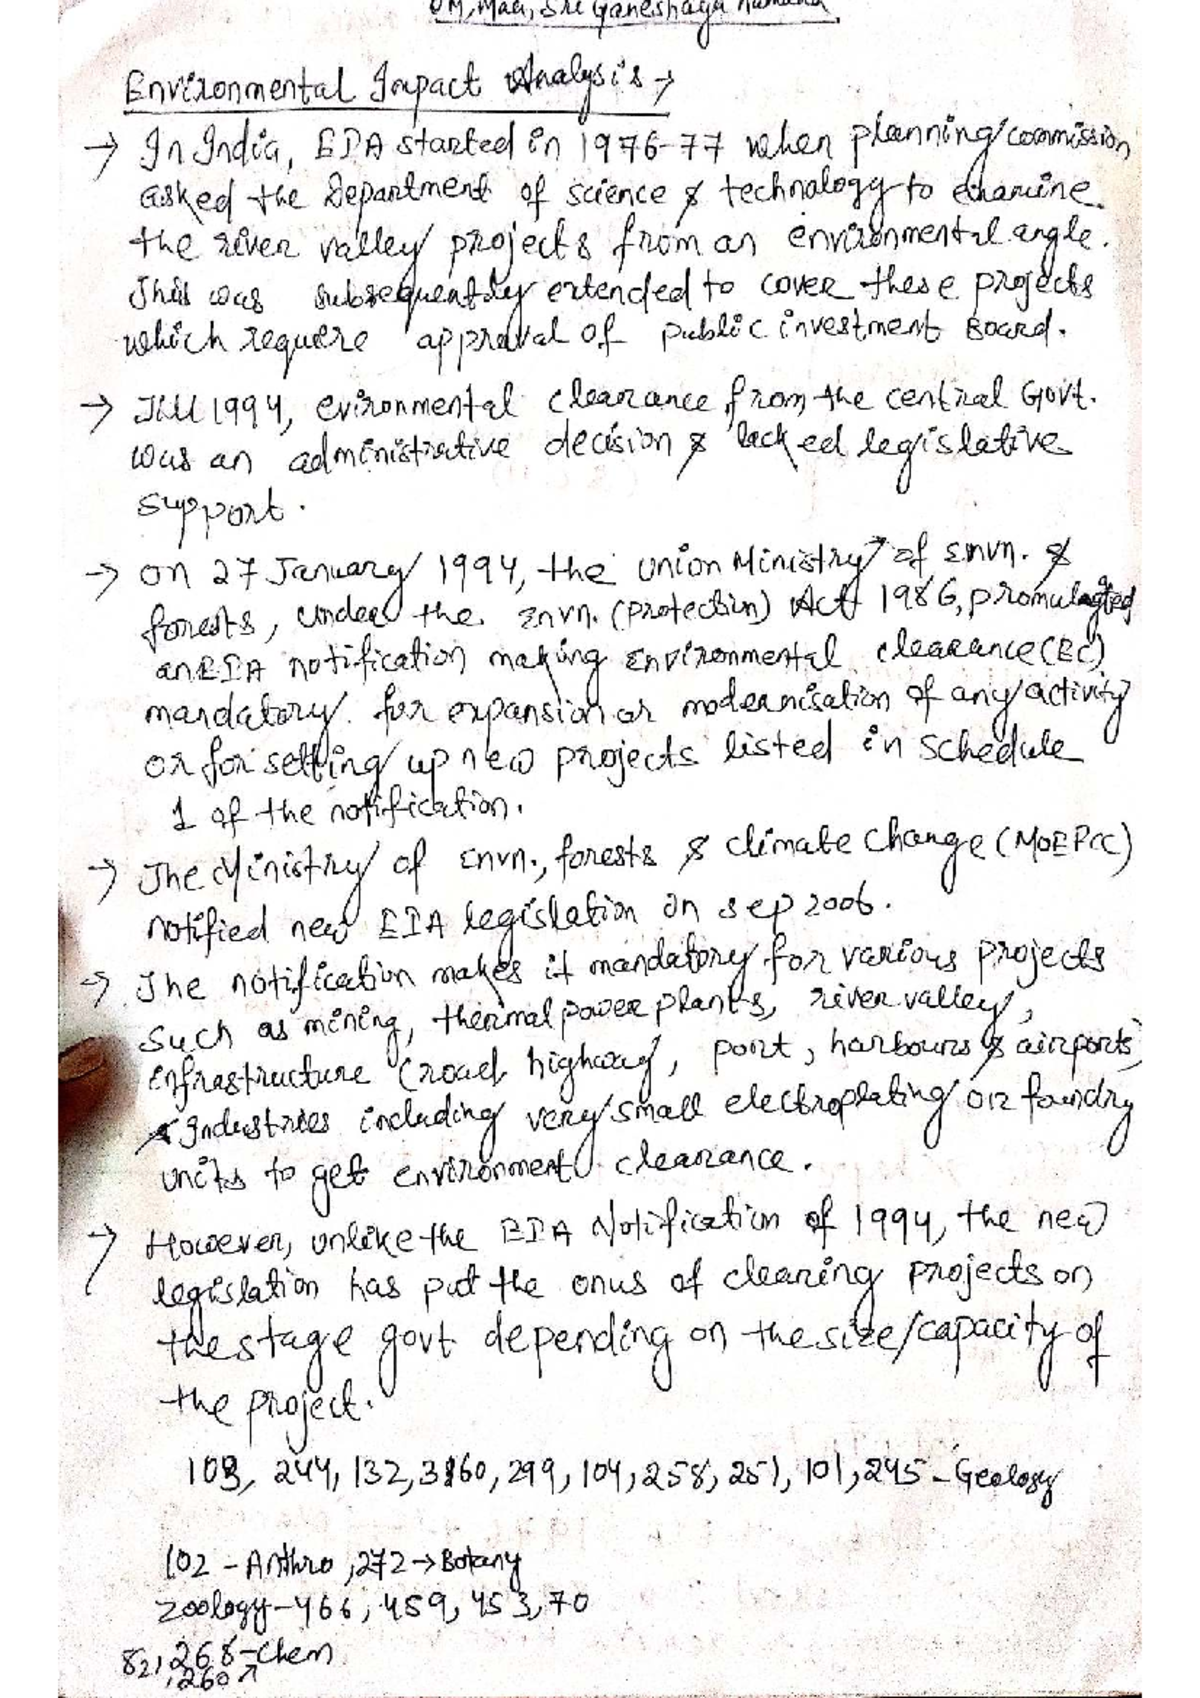 OM, Maa, Sri Ganeshaya Namaha
Environmental Impact Analysis →
→ In India, EIA started in 1976-77 when planning commission
asked the Department of science & technology to examine
the river valley projects from an environmental angle.
This was subsequently extended to cover these projects
which require approval of public investment Board.
→ Till 1994, evironmental clearance from the central Govt.
was an administrative decision & lacked legislative
support.
→ On 27 January 1994, the union Ministry of Envn. &
forests, under the Envn. (protection) Act 1986, promulagted
an EIA notification making Environmental clearance (EC)
mandatory for expansion or modernisation of any activity
or for setting up new projects listed in Schedule
1 of the notification.
→ The Ministry of Envn., forests & climate change (MOEFCC)
notified new EIA legislation in sep 2006.
→ The notification makes it mandatory for various projects
such as mining, thermal power plants, river valley,
infrastructure (road highway, port, harbours & airports)
& Industries including very small electroplating or foundry
units to get environment clearance.
→ However, unlike the EIA Notification of 1994, the new
legislation has put the onus of clearing projects on
the stage govt depending on the size/capacity of
the project.
103, 244, 132, 3160, 299, 104, 258, 251, 101, 245 - Geology
102 - Anthro, 272 → Botany
Zoology - 466, 459, 453, 70
821, 268 - Chem
, 260 ↗